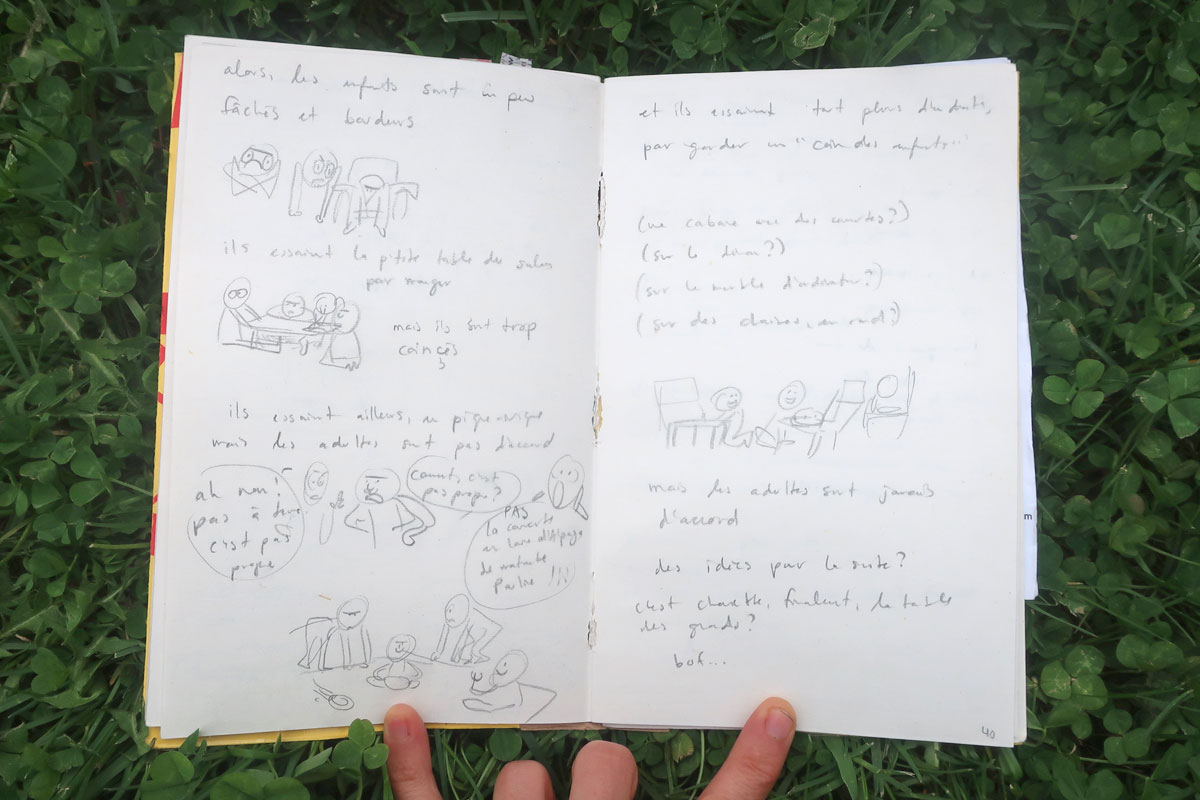 alors, les enfants sont un peu
fâchés et boudeurs
ils essaient la p'tite table du salon
par manger
mais ils sont trop
coinçés
ils essaient ailleurs, au pique nique
mais les adultes sont pas d'accord
ah non!
pas à terre
c'est pas
propre
comment, c'est
pas propre?
PAS
la couverte
en laine d'alpaga
de matante
Pauline !!!
et ils essaient tout plein d'endroits,
par garder un "coin des enfants"
(une cabane avec des couvertes?)
(sur le divan?)
(sur le meuble d'ordinateur?)
(sur des chaises, en rond?)
mais les adultes sont jamais
d'accord
des idées par la suite?
c'est chouette, finalement, la table
des grands?
bof...
40
m